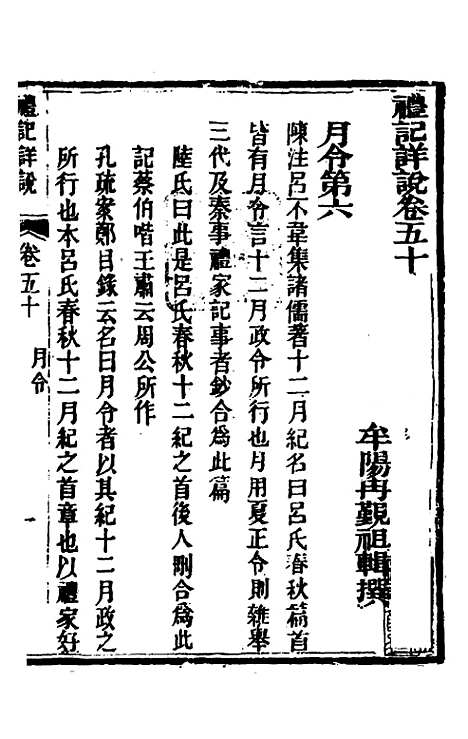 禮記詳說卷五十
牟陽冉覲祖輯撰
月令第六
陳注呂不韋集諸儒著十二月紀名曰呂氏春秋篇首
皆有月令言十二月政令所行也月用夏正令則雜舉
三代及秦事禮家記事者鈔合爲此篇
陸氏曰此是呂氏春秋十二紀之首後人刪合爲此
記蔡伯喈王肅云周公所作
孔疏案鄭目錄云名曰月令者以其紀十二月政之
所行也本呂氏春秋十二月紀之首章也以禮家好
禮記詳說
卷五十
月令
一